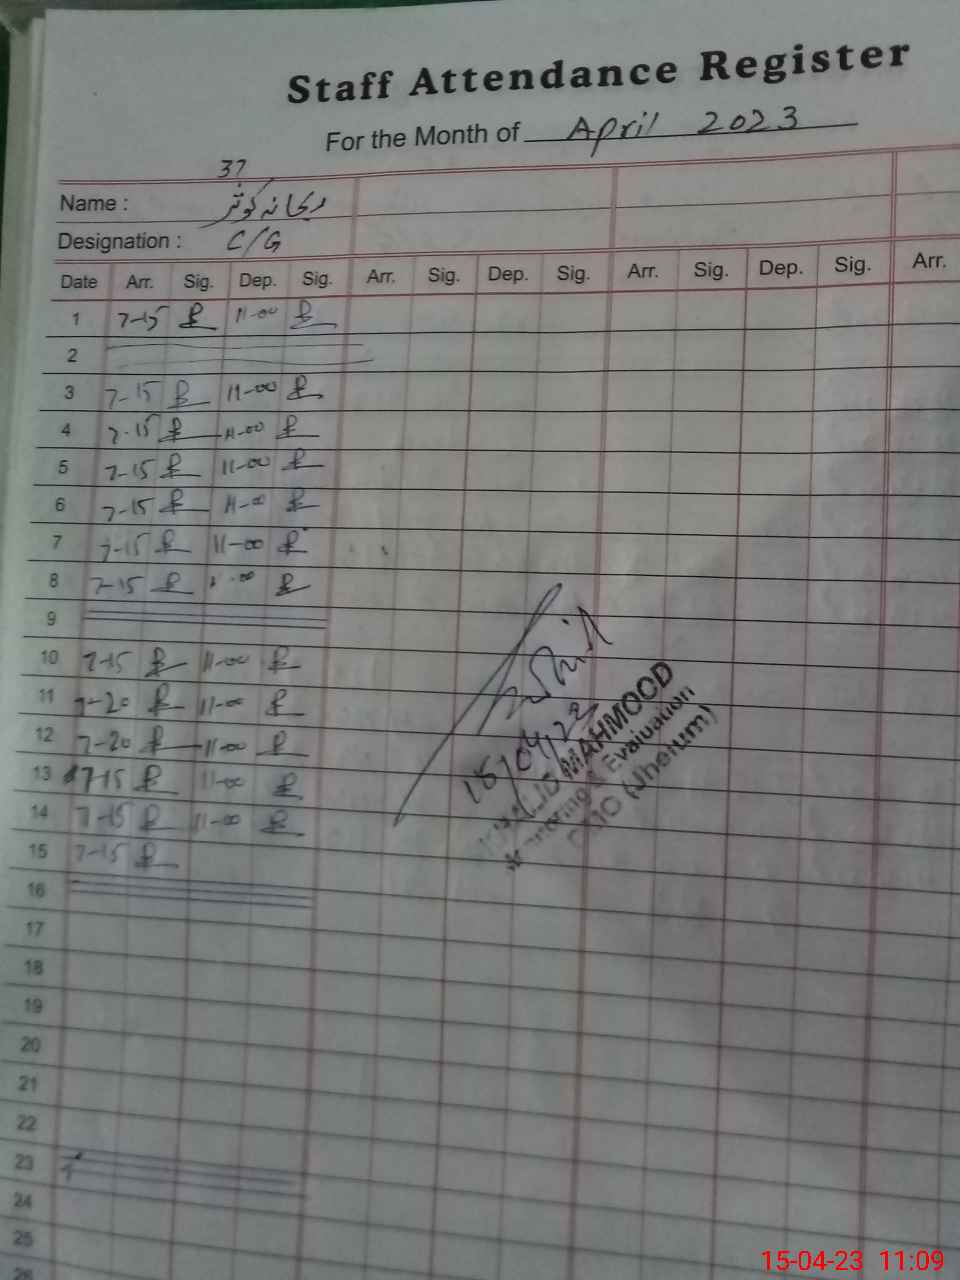 Staff Attendance Register
For the Month of April 2023
37
Name : ریحانہ کوثر
Designation : C/G
Date Arr. Sig. Dep. Sig. Arr. Sig. Dep. Sig. Arr. Sig. Dep. Sig. Arr.
1 7-15 11-00
2
3 7-15 11-00
4 7-15 11-00
5 7-15 11-00
6 7-15 11-00
7 7-15 11-00
8 7-15 11-00
9
10 7-15 11-00
11 7-20 11-00
12 7-20 11-00
13 7-15 11-00
14 7-15 11-00
15 7-15
16
17
18
19
20
21
22
23
24
25
26
15/04/23
MAHMOOD
Evaluation
(Jhelum)
15-04-23 11:09